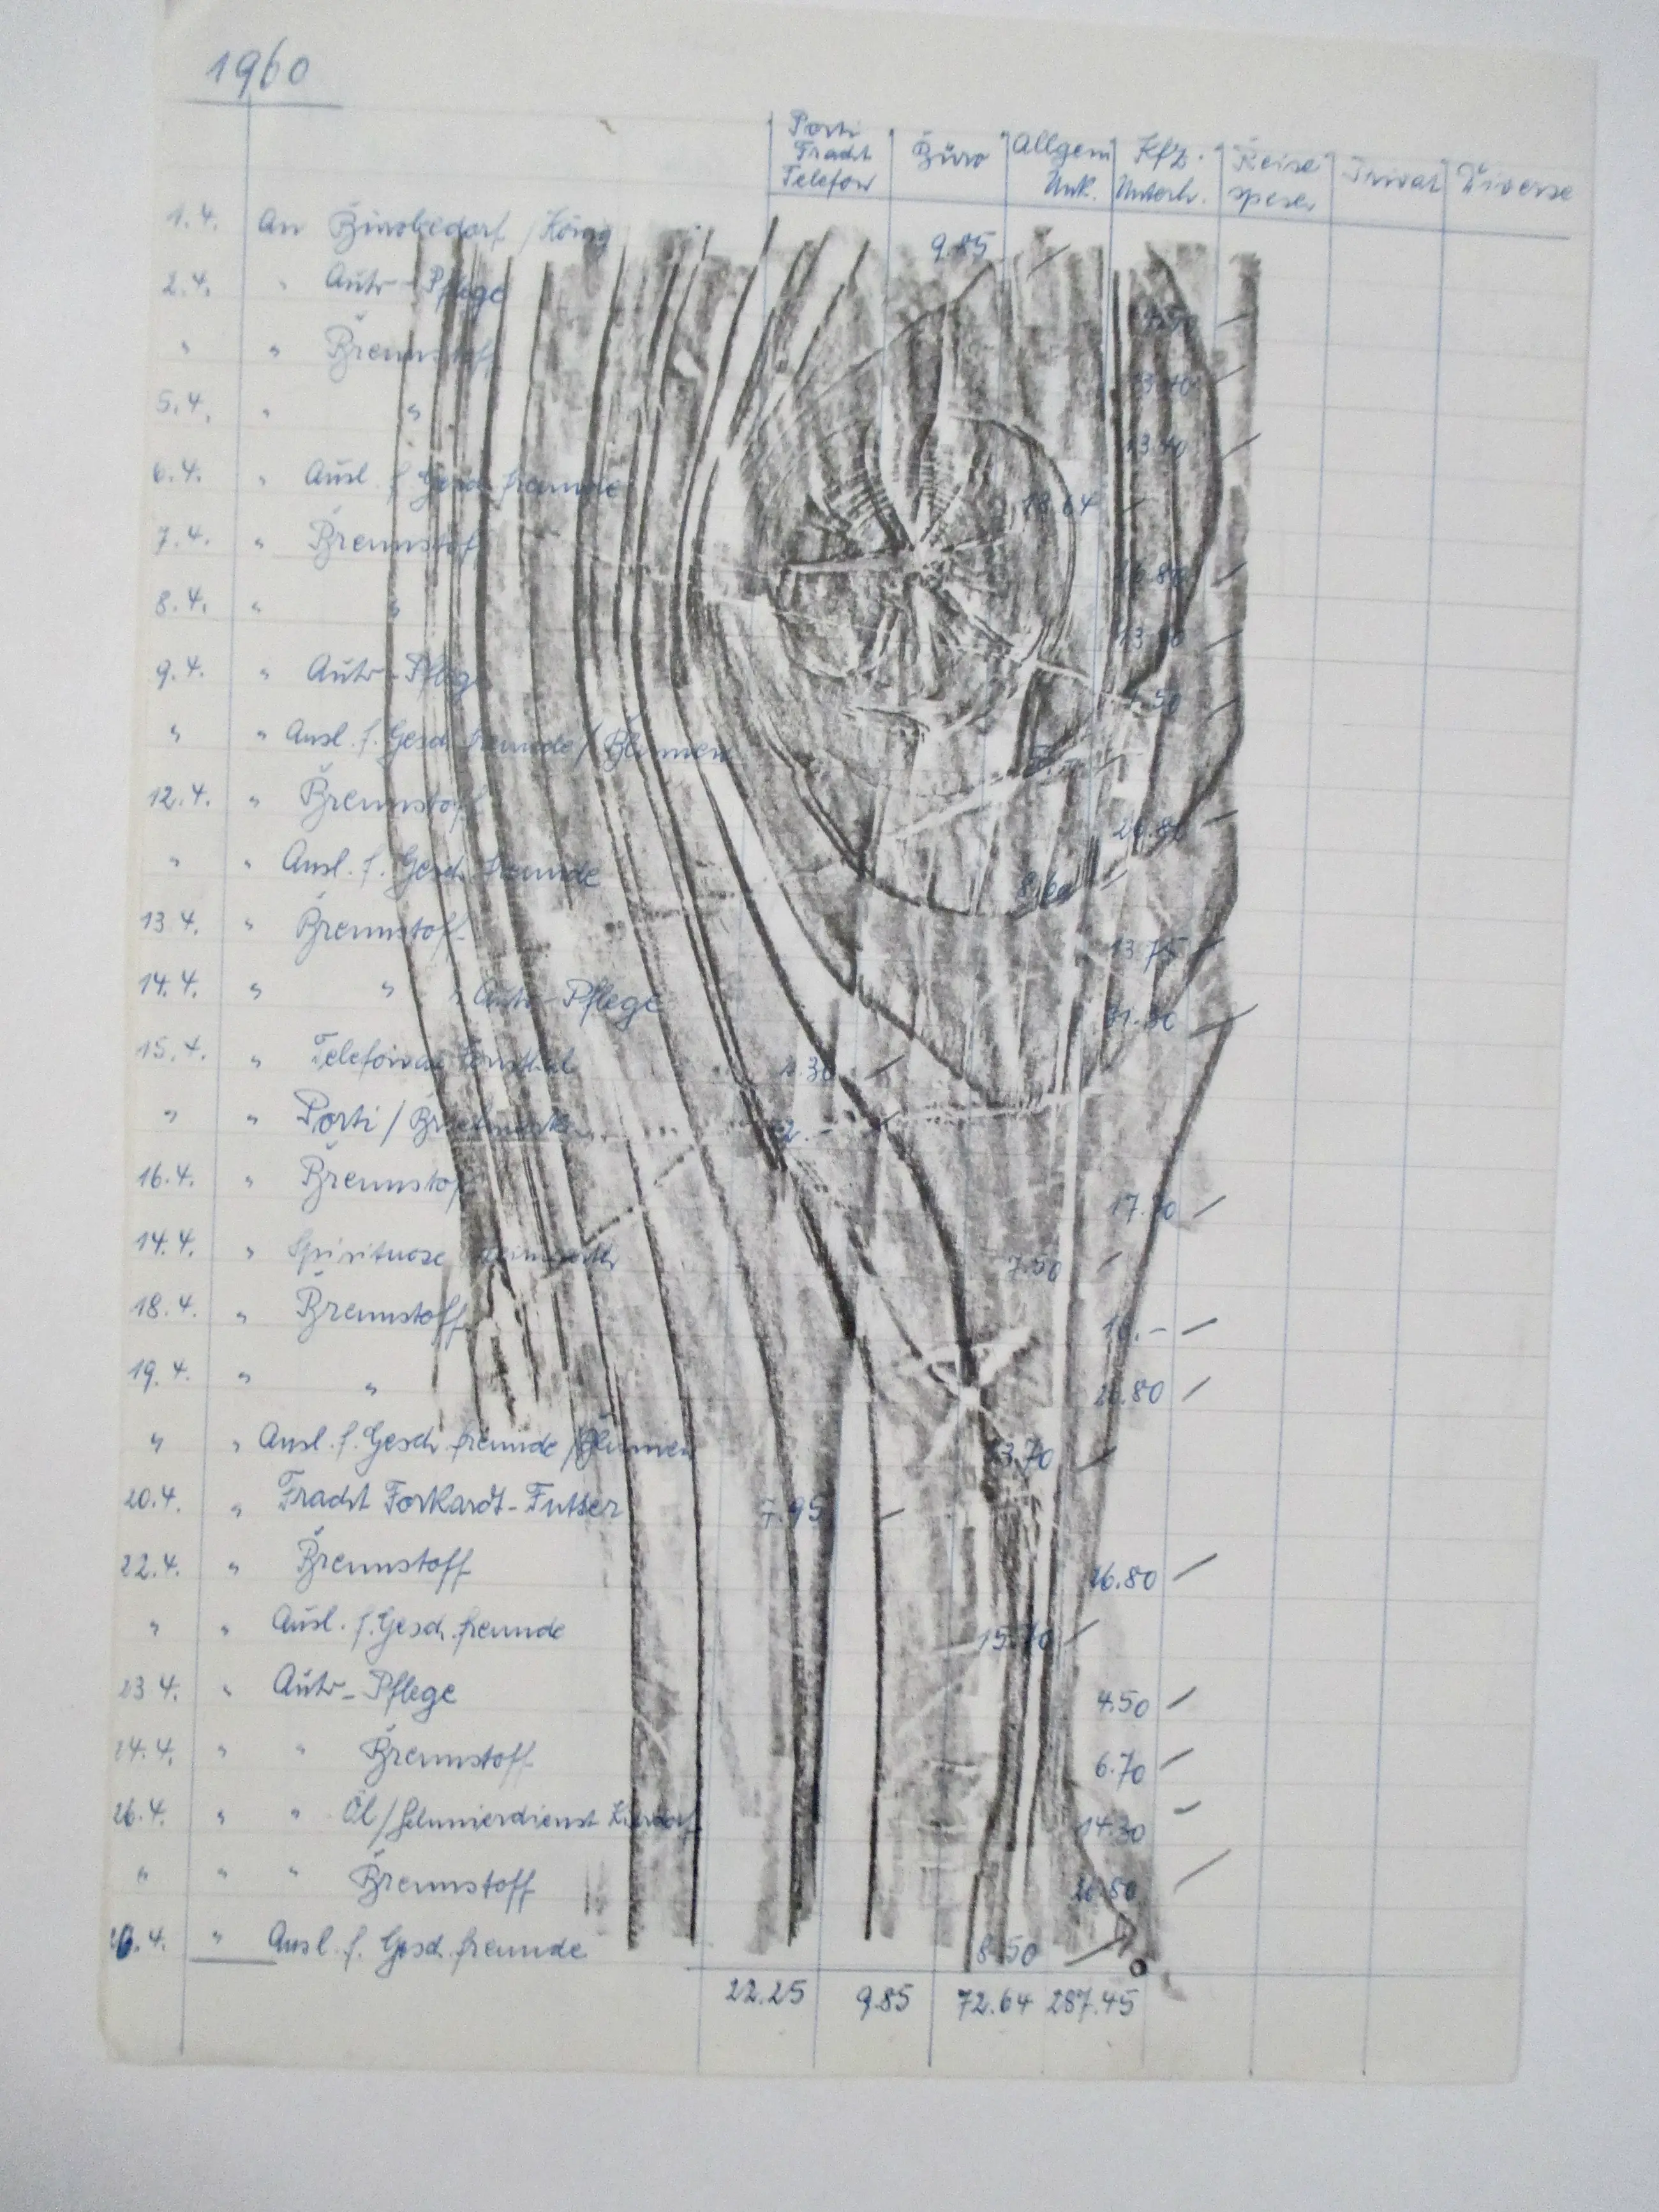 1960
Porti Fracht Telefon Büro Allgem Unk. Kfz. Unterh. Reise spesen Privat Diverse
1.4. An Bürobedarf / König 9.85
2.4. " Auto-Pflege 4.50
" " Brennstoff 13.40
5.4. " " 13.40
6.4. " Ausl. f. Gesch. freunde 18.64
7.4. " Brennstoff 16.80
8.4. " " 13.
9.4. " Auto-Pflege 4.50
" " Ausl. f. Gesch. freunde / Blumen
12.4. " Brennstoff 26.80
" " Ausl. f. Gesch. freunde 8.60
13.4. " Brennstoff 13.75
14.4. " " " Auto-Pflege 31.30
15.4. " 30
" " Porti / 12.-
16.4. " Brennstoff 17.
14.4. " Spirituose 7.50
18.4. " Brennstoff 10.-
19.4. " " 26.80
" " Ausl. f. Gesch. freunde / Blumen 13.70
20.4. " Fracht Forkardt-Futter 7.95
22.4. " Brennstoff 26.80
" " Ausl. f. Gesch. freunde 15.70
23.4. " Auto-Pflege 4.50
24.4. " " Brennstoff 6.70
26.4. " " Öl / 14.30
" " " Brennstoff 26.80
" Ausl. f. Gesch. freunde 8.50
22.25 9.85 72.64 287.45